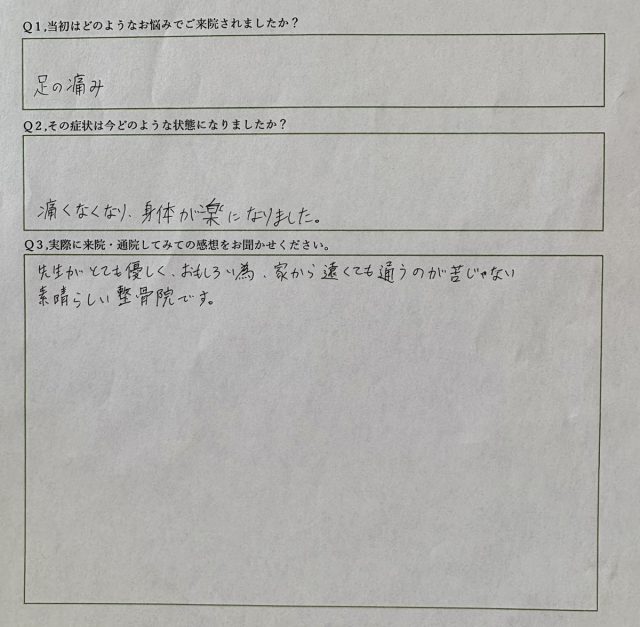 Q1,当初はどのようなお悩みでご来院されましたか？
足の痛み
Q2,その症状は今どのような状態になりましたか？
痛くなくなり、身体が楽になりました。
Q3,実際に来院・通院してみての感想をお聞かせください。
先生がとても優しく、おもしろい為、家から遠くても通うのが苦じゃない
素晴らしい整骨院です。